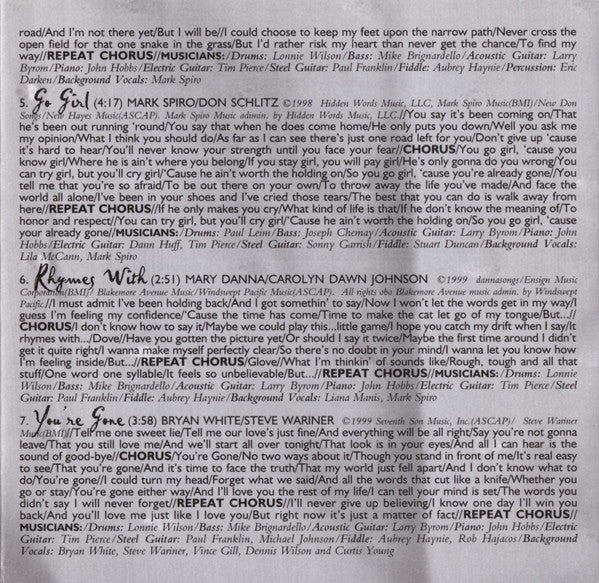 road/And I'm not there yet/But I will be//I could choose to keep my feet upon the narrow path/Never cross the
open field for that one snake in the grass/But I'd rather risk my heart than never get the chance/To find my
way//REPEAT CHORUS//MUSICIANS:/Drums: Lonnie Wilson/Bass: Mike Brignardello/Acoustic Guitar: Larry
Byrom/Piano: John Hobbs/Electric Guitar: Tim Pierce/Steel Guitar: Paul Franklin/Fiddle: Aubrey Haynie/Percussion: Eric
Darken/Background Vocals: Mark Spiro
5. Go Girl (4:17) MARK SPIRO/DON SCHLITZ ©1998 Hidden Words Music, LLC, Mark Spiro Music(BMI)/New Don
Songs/New Hayes Music(ASCAP). Mark Spiro Music admin. by Hidden Words Music, LLC.//You say it's been coming on/That
he's been out running 'round/You say that when he does come home/He only puts you down/Well you ask me
my opinion/What I think you should do/As far as I can see there's just one road left for you/Don't give up 'cause
it's hard to hear/You'll never know your strength until you face your fear//CHORUS/You go girl, 'cause you
know girl/Where he is ain't where you belong/If you stay girl, you will pay girl/He's only gonna do you wrong/You
can try girl, but you'll cry girl/'Cause he ain't worth the holding on/So you go girl, 'cause you're already gone//You
tell me that you're so afraid/To be out there on your own/To throw away the life you've made/And face the
world all alone/I've been in your shoes and I've cried those tears/The best that you can do is walk away from
here//REPEAT CHORUS//If he only makes you cry/What kind of life is that/If he don't know the meaning of/To
honor and respect//You can try girl, but you'll cry girl/'Cause he ain't worth the holding on/So you go girl, 'cause
your already gone//MUSICIANS:/Drums: Paul Leim/Bass: Joseph Chemay/Acoustic Guitar: Larry Byrom/Piano: John
Hobbs/Electric Guitar: Dann Huff, Tim Pierce/Steel Guitar: Sonny Garrish/Fiddle: Stuart Duncan/Background Vocals:
Lila McCann, Mark Spiro
6. Rhymes With (2:51) MARY DANNA/CAROLYN DAWN JOHNSON ©1999 dannasongs/Ensign Music
Corporation(BMI)/ Blakemore Avenue Music/Windswept Pacific Music(ASCAP). All rights obo Blakemore Avenue music admin. by Windswept
Pacific.//I must admit I've been holding back/And I got somethin' to say/Now I won't let the words get in my way/I
guess I'm feeling my confidence/'Cause the time has come/Time to make the cat let go of my tongue/But...//
CHORUS/I don't know how to say it/Maybe we could play this...little game/I hope you catch my drift when I say/It
rhymes with.../Dove//Have you gotten the picture yet/Or should I say it twice/Maybe the first time around I didn't
get it quite right/I wanna make myself perfectly clear/So there's no doubt in your mind/I wanna let you know how
I'm feeling inside/But...//REPEAT CHORUS/Glove//What I'm thinkin' of sounds like/Rough, tough and all that
stuff/One word one syllable/It feels so unbelievable/But...//REPEAT CHORUS//MUSICIANS:/Drums: Lonnie
Wilson/Bass: Mike Brignardello/Acoustic Guitar: Larry Byrom/Piano: John Hobbs/Electric Guitar: Tim Pierce/Steel
Guitar: Paul Franklin/Fiddle: Aubrey Haynie/Background Vocals: Liana Manis, Mark Spiro
7. You're Gone (3:58) BRYAN WHITE/STEVE WARINER ©1999 Seventh Son Music, Inc.(ASCAP)/ Steve Wariner
Music(BMI)//Tell me one sweet lie/Tell me our love's just fine/And everything will be all right/Say you're not gonna
leave/That you still love me/And we'll start all over tonight/That look is in your eyes/And all I can hear is the
sound of good-bye//CHORUS/You're Gone/No two ways about it/Though you stand in front of me/It's real easy
to see/That you're gone/And it's time to face the truth/That my world just fell apart/And I don't know what to
do/You're gone//I could turn my head/Forget what we said/And all the words that cut like a knife/Whether you
go or stay/You're gone either way/And I'll love you the rest of my life/I can tell your mind is set/The words you
didn't say I will never forget//REPEAT CHORUS//I'll never give up believing/I know one day I'll win you
back/And you'll love me just like I love you/But right now it's just a matter of fact//REPEAT CHORUS//
MUSICIANS:/Drums: Lonnie Wilson/Bass: Mike Brignardello/Acoustic Guitar: Larry Byrom/Piano: John Hobbs/Electric
Guitar: Tim Pierce/Steel Guitar: Paul Franklin, Michael Johnson/Fiddle: Aubrey Haynie, Rob Hajacos/Background
Vocals: Bryan White, Steve Wariner, Vince Gill, Dennis Wilson and Curtis Young